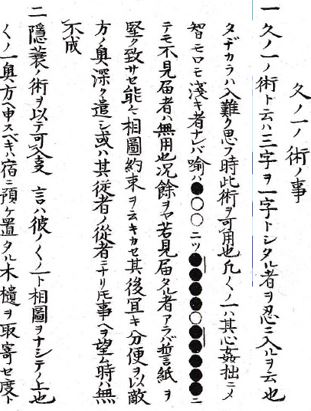 久ノ一ノ術ノ事
一 久ノ一ノ術ト云ハ三字ヲ一字トシタル者ヲ忍ニ入ルヲ云也
タヂカラハ入難ク思フ時此術ヲ可用也凡くノ一ハ其心姦拙ニメ
智モロモ淺キ者ナレバ喩ハ●○○ニツ●●●●○●●●●●ニ
テモ不見届者ハ無用也況餘ヲヤ若見届タル者アラバ誓紙ヲ
堅ク致サセ能ニ相圖約束ヲ云キカセ其後宜キ分便ヲ以敵
方ノ奥深ク遣シ或ハ其従者ノ従者ニナリ
事ヘヲ望ム時ハ無
不成
二 隠蓑ノ術ヲ以テ可入支 言ハ彼ノくノ一ト相圖ヲナシテノ上也
くノ一奥方ヘ申スベキハ宿ニ預ケ置タル木櫃ヲ取寄セ度ト